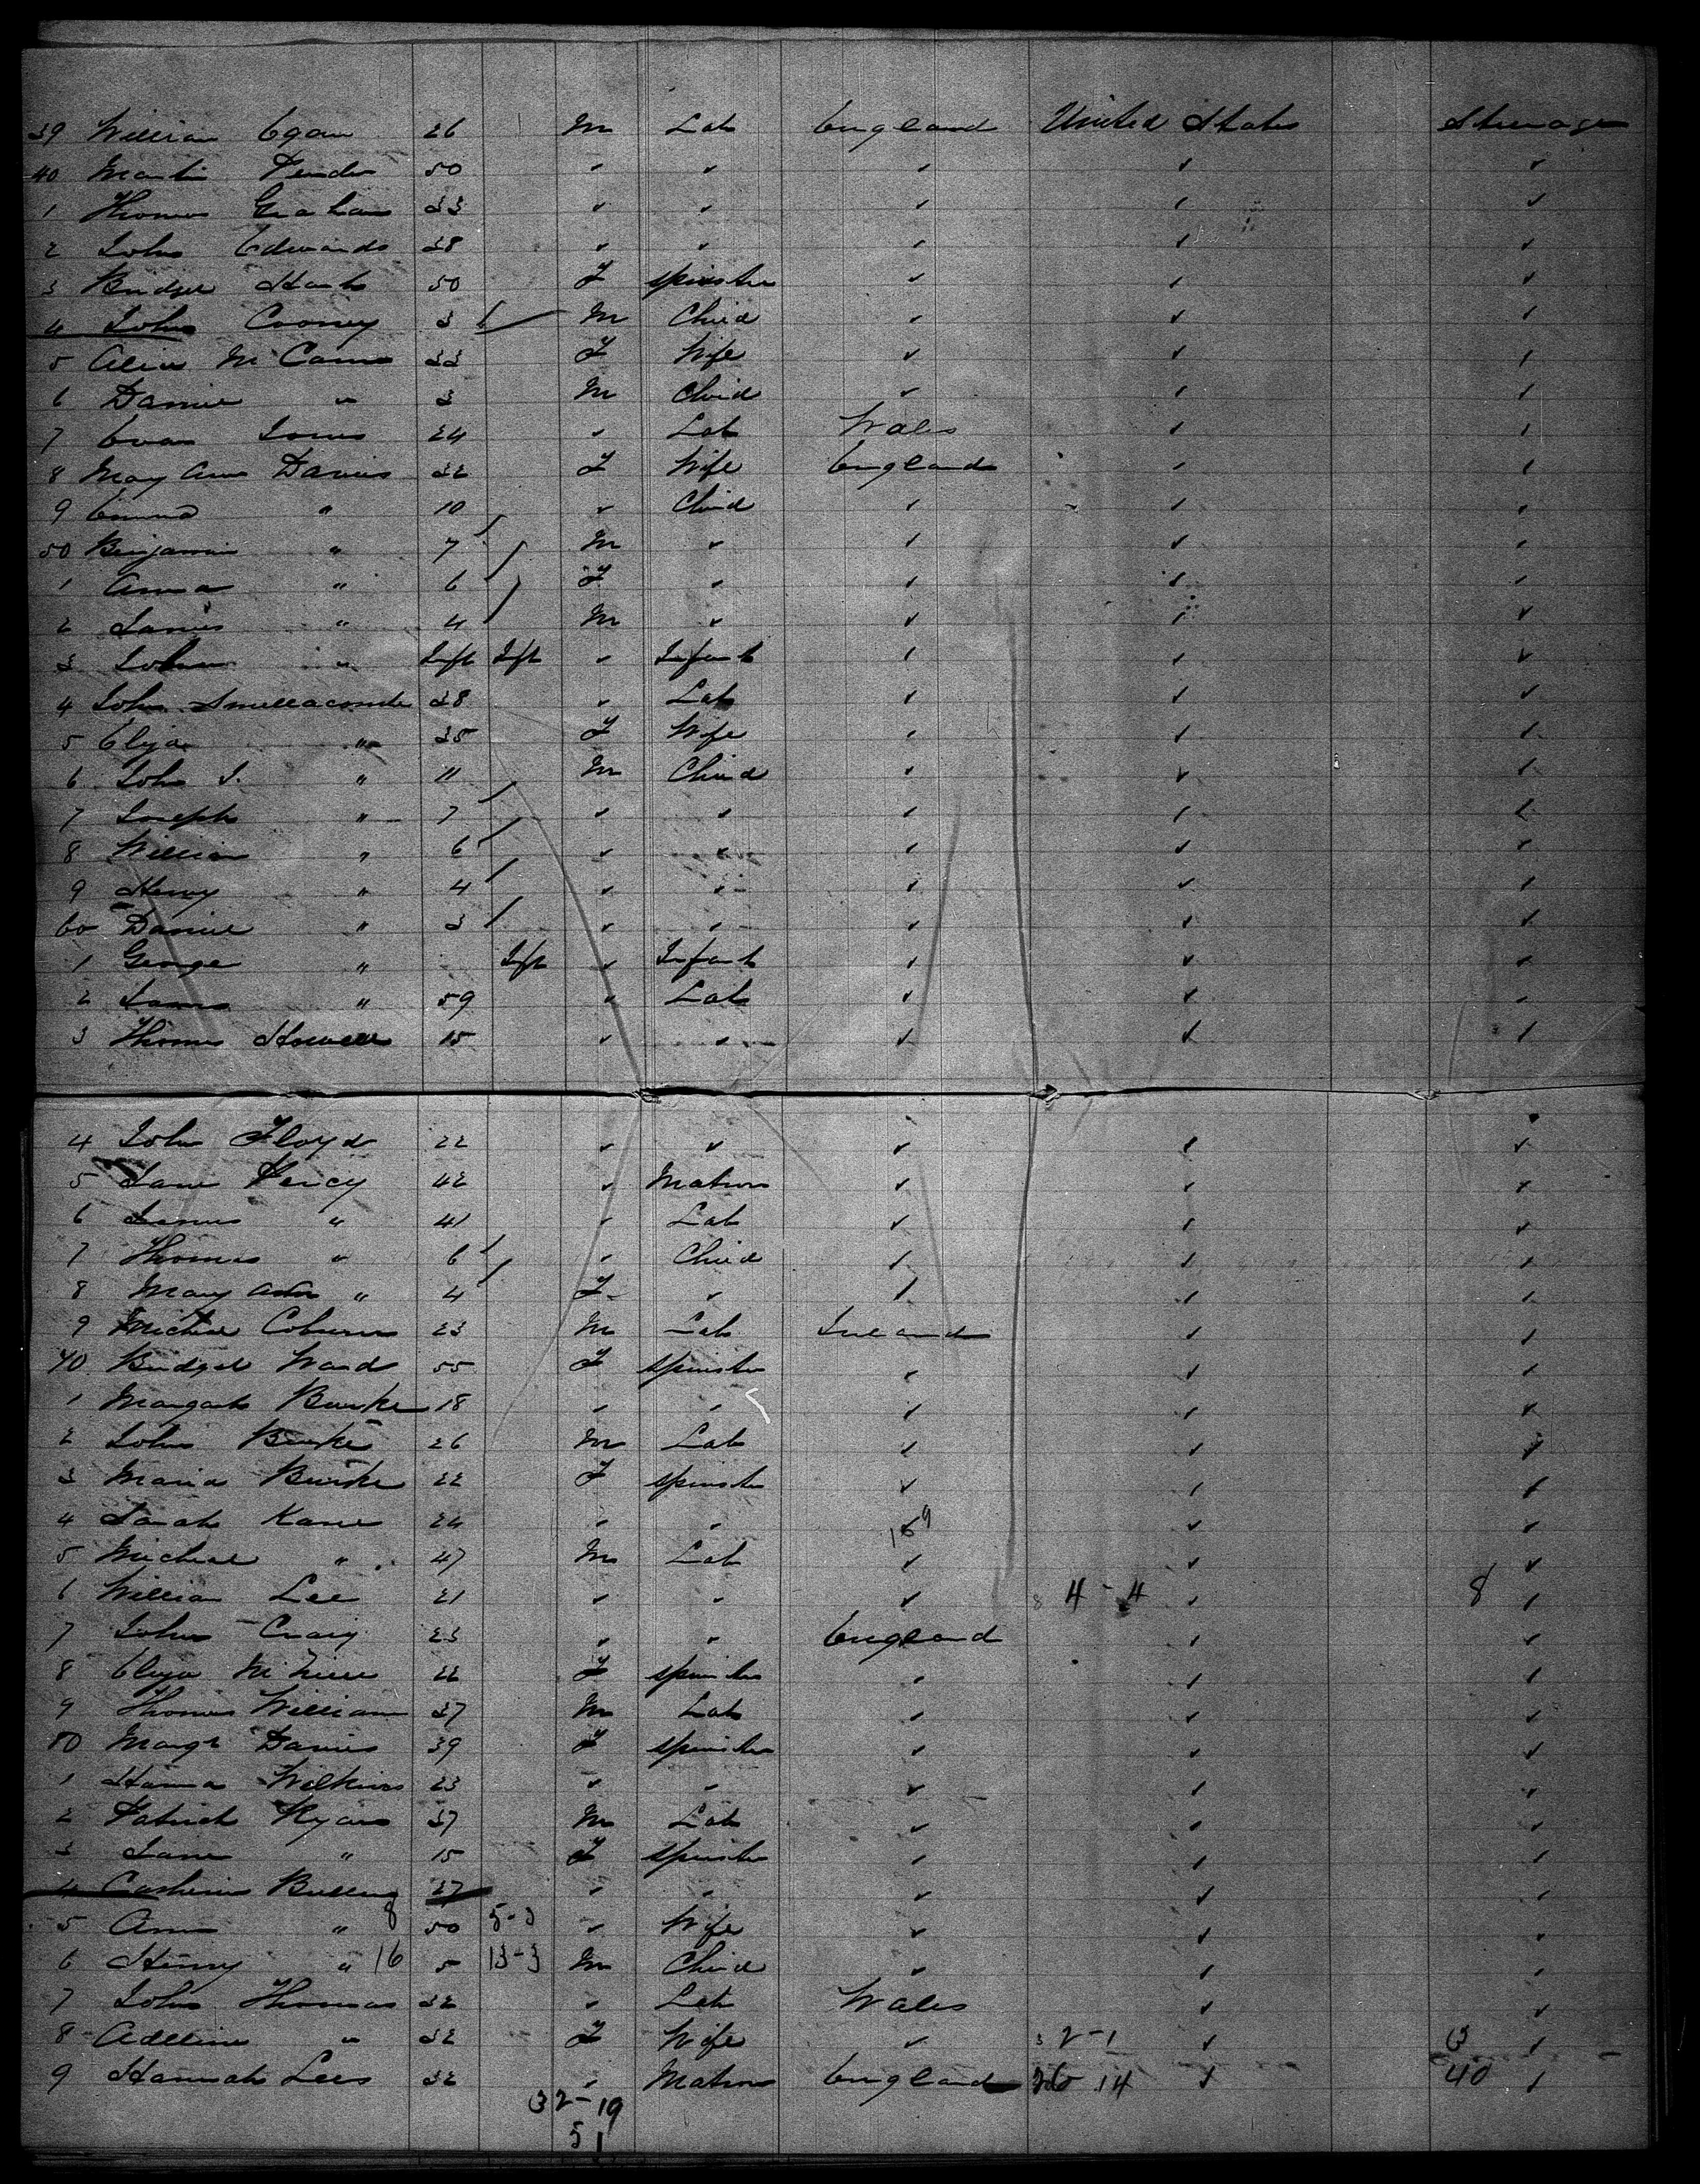 39 William Egan 26 M Lab England United States Steerage
40 Martin 50 " " " " "
1 Thomas Graham 33 " " " " "
2 John Edwards 38 " " " " "
3 Bridget 50 F Spinster " " "
4 John Cooney 3 M Child " " "
5 Alice McCann 33 F Wife " " "
6 Daniel " 3 M Child " " "
7 Evan Jones 24 " Lab Wales " "
8 Mary Ann Davies 32 F Wife England " "
9 Emma " 10 " Child " " "
50 Benjamin " 7 M " " " "
1 Anna " 6 F " " " "
2 James " 4 M " " " "
3 John " Inft Inft " Infant " " "
4 John Smellacombe 38 " Lab " " "
5 Eliza " 35 F Wife " " "
6 John J. " 11 M Child " " "
7 Joseph " 7 " " " " "
8 William " 6 " " " " "
9 Henry " 4 " " " " "
60 Daniel " 3 " " " " "
1 George " Inft " Infant " " "
2 James " 59 " Lab " " "
3 Thomas Howell 15 " " " " "
4 John Floyd 22 " " " " "
5 Jane 42 " Matron " " "
6 James " 41 " Lab " " "
7 Thomas " 6 " Child " " "
8 Mary Ann " 4 F " " " "
9 Michael 23 M Lab Ireland " "
70 Bridget Ward 55 F Spinster " " "
1 Margart Burke 18 " " " " "
2 John Burke 26 M Lab " " "
3 Maria Burke 22 F Spinster " " "
4 Sarah Kane 24 " " " " "
5 Micheal " 47 M Lab " " "
6 William Lee 21 " " " 4-4 " 8 "
7 John Craig 23 " " England " "
8 Eliza 22 F Spinster " " "
9 Thomas William 37 M Lab " " "
80 Margt Davies 39 F Spinster " " "
1 Hanna Wilkins 23 " " " " "
2 Patrick Ryan 37 M Lab " " "
3 Jane " 15 F Spinster " " "
4 27 " " " " "
5 Ann " 8 50 5-3 " Wife " " "
6 Henry " 16 5 13-3 M Child " " "
7 John Thomas 32 " Lab Wales " "
8 Adeline " 32 F Wife " 2-1 " 3 "
9 Hannah Lees 32 " Matron England 26 14 " 40 "
32-19
51